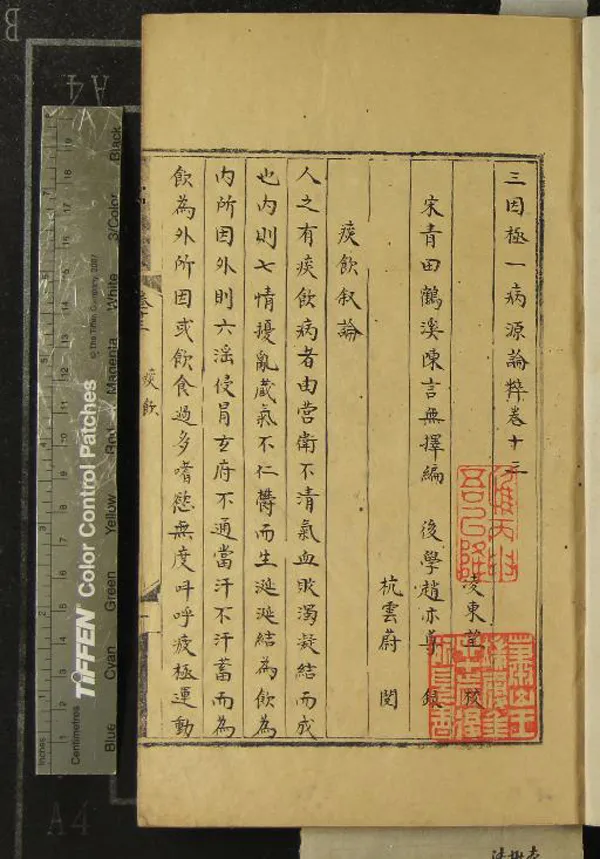 三因極一病源論粹卷十三
凌東 校
宋青田鶴溪陳言無擇編 後學趙亦尊 録
杭雲蔚 閱
痰飲叙論
人之有痰飲病者由營衛不清氣血敗濁凝結而成
也内則七情擾亂蔵氣不仁欝而生涎涎結為飲為
内所因外則六滛侵冐玄府不通當汗不汗蓄而為
飲為外所因或飲食過多嗜慾無度呌呼疲極運動
卷十三
痰飲
一
B
A4
A4
Inches
Centimetres
TIFFEN Color Control Patches
© The Tiffen Company, 2007
Blue
Cyan
Green
Yellow
Red
Magenta
White
3/Color
Black